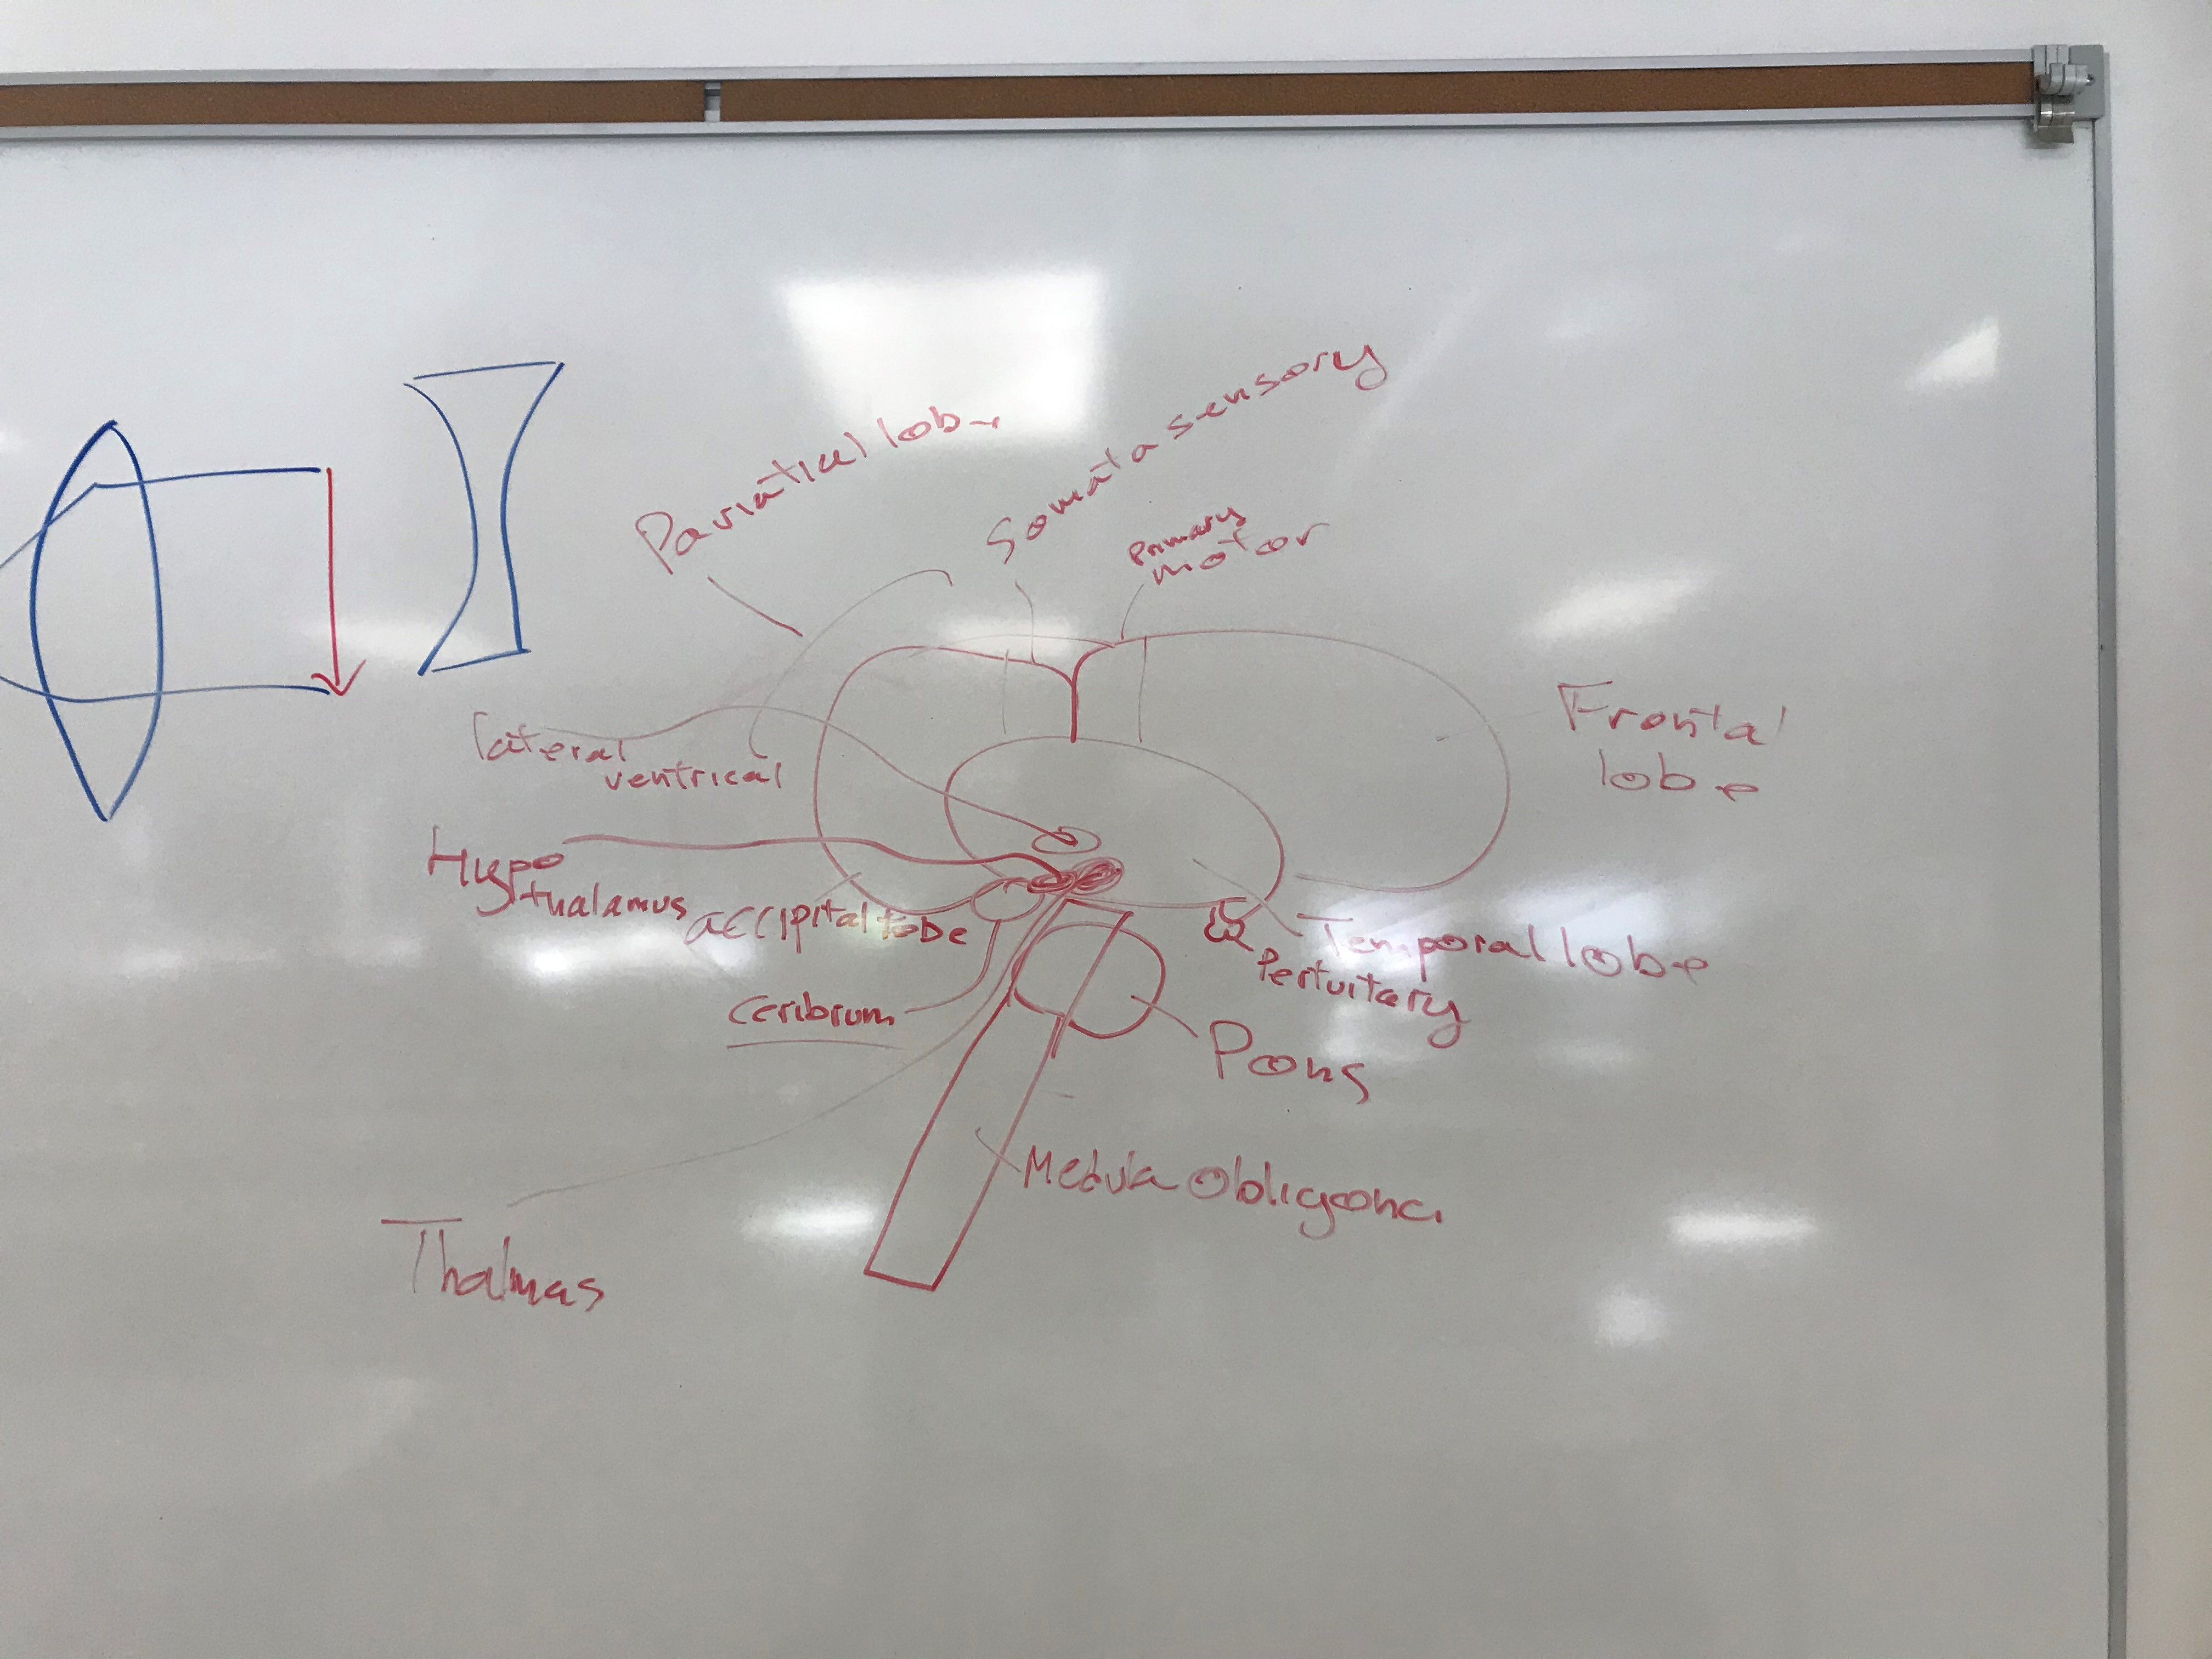 Pariatical lobe
Somata sensory
Primary
motor
Frontal
lobe
lateral
ventrical
Hypo
thalamus
accipital lobe
Temporal lobe
Pertuitary
Ceribrum
Pons
Medula Obligona
Thalmas